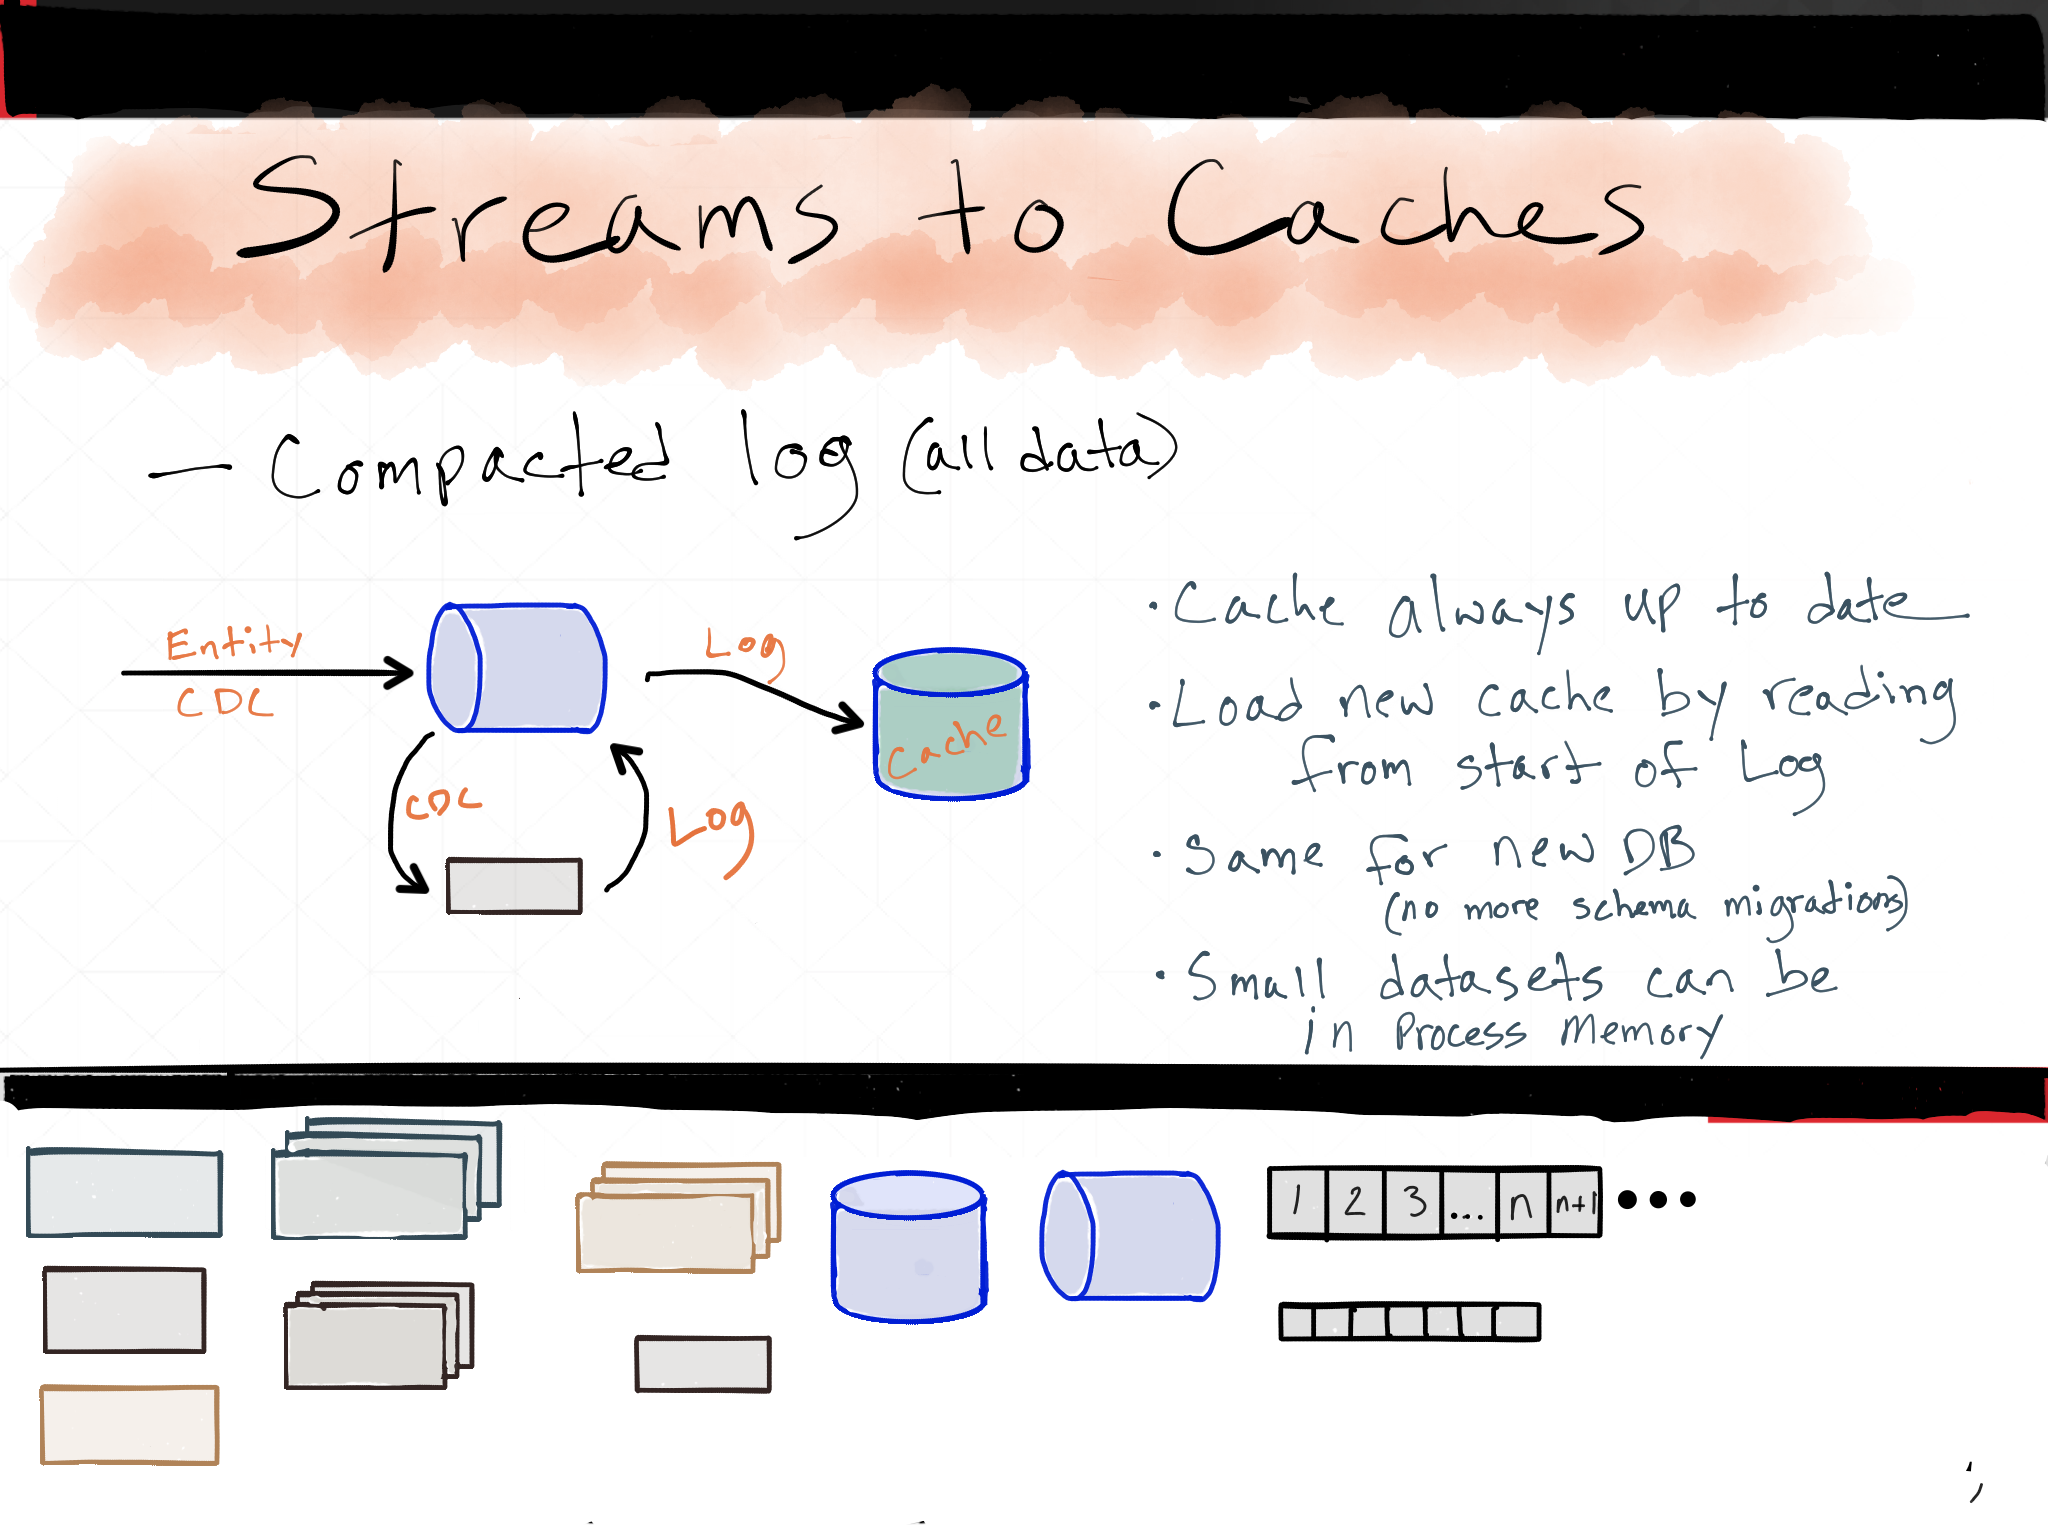 Streams to Caches
– Compacted log (all data)
Entity
CDC
Log
Cache
CDC
Log
• Cache always up to date
• Load new cache by reading
from start of Log
• Same for new DB
(no more schema migrations)
• Small datasets can be
in Process Memory
1 2 3 ... n n+1 •••